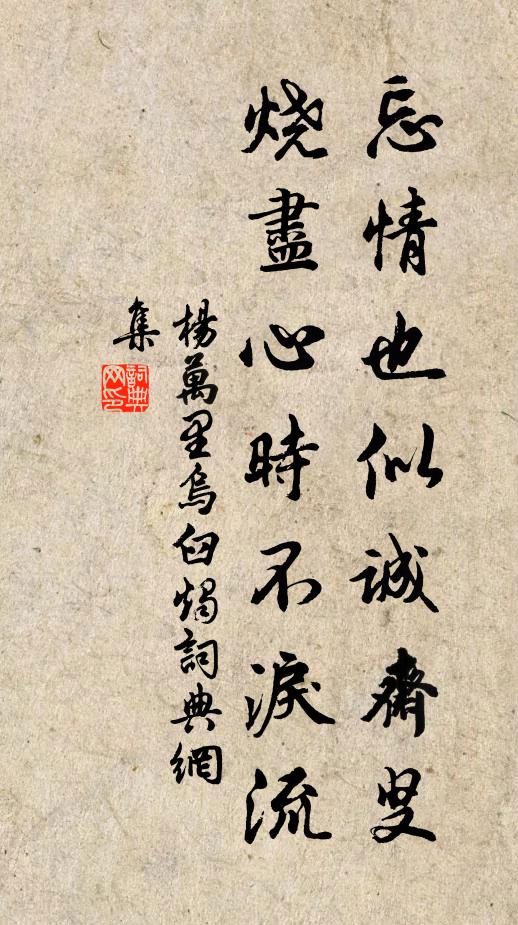 忘情也似誠齋叟
烧盡心時不淚流
楊萬里烏臼燭詞典網
集
詞典
网印